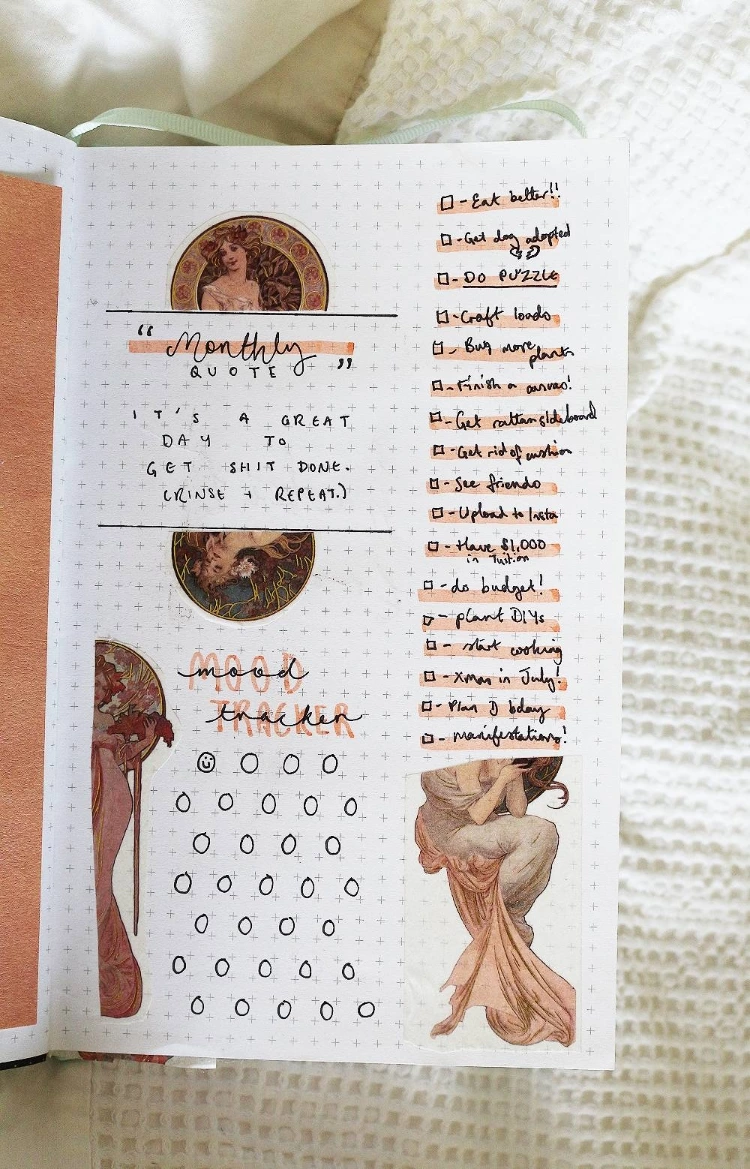 “ Monthly
QUOTE ”
IT'S A GREAT
DAY TO
GET SHIT DONE.
(RINSE + REPEAT.)
MOOD
mood
TRACKER
tracker
- Eat better!!
- Get dog adopted
- DO PUZZLE
- Craft loads
- Buy more
plants
- Finish a canvas!
- Get rattan sideboard
- Get rid of cushion
- See friends
- Upload to Insta
- Have $1,000
in Tuition
- do budget!
- plant DIYs
- start cooking
- Xmas in July!
- Plan D bday
- manifestations!